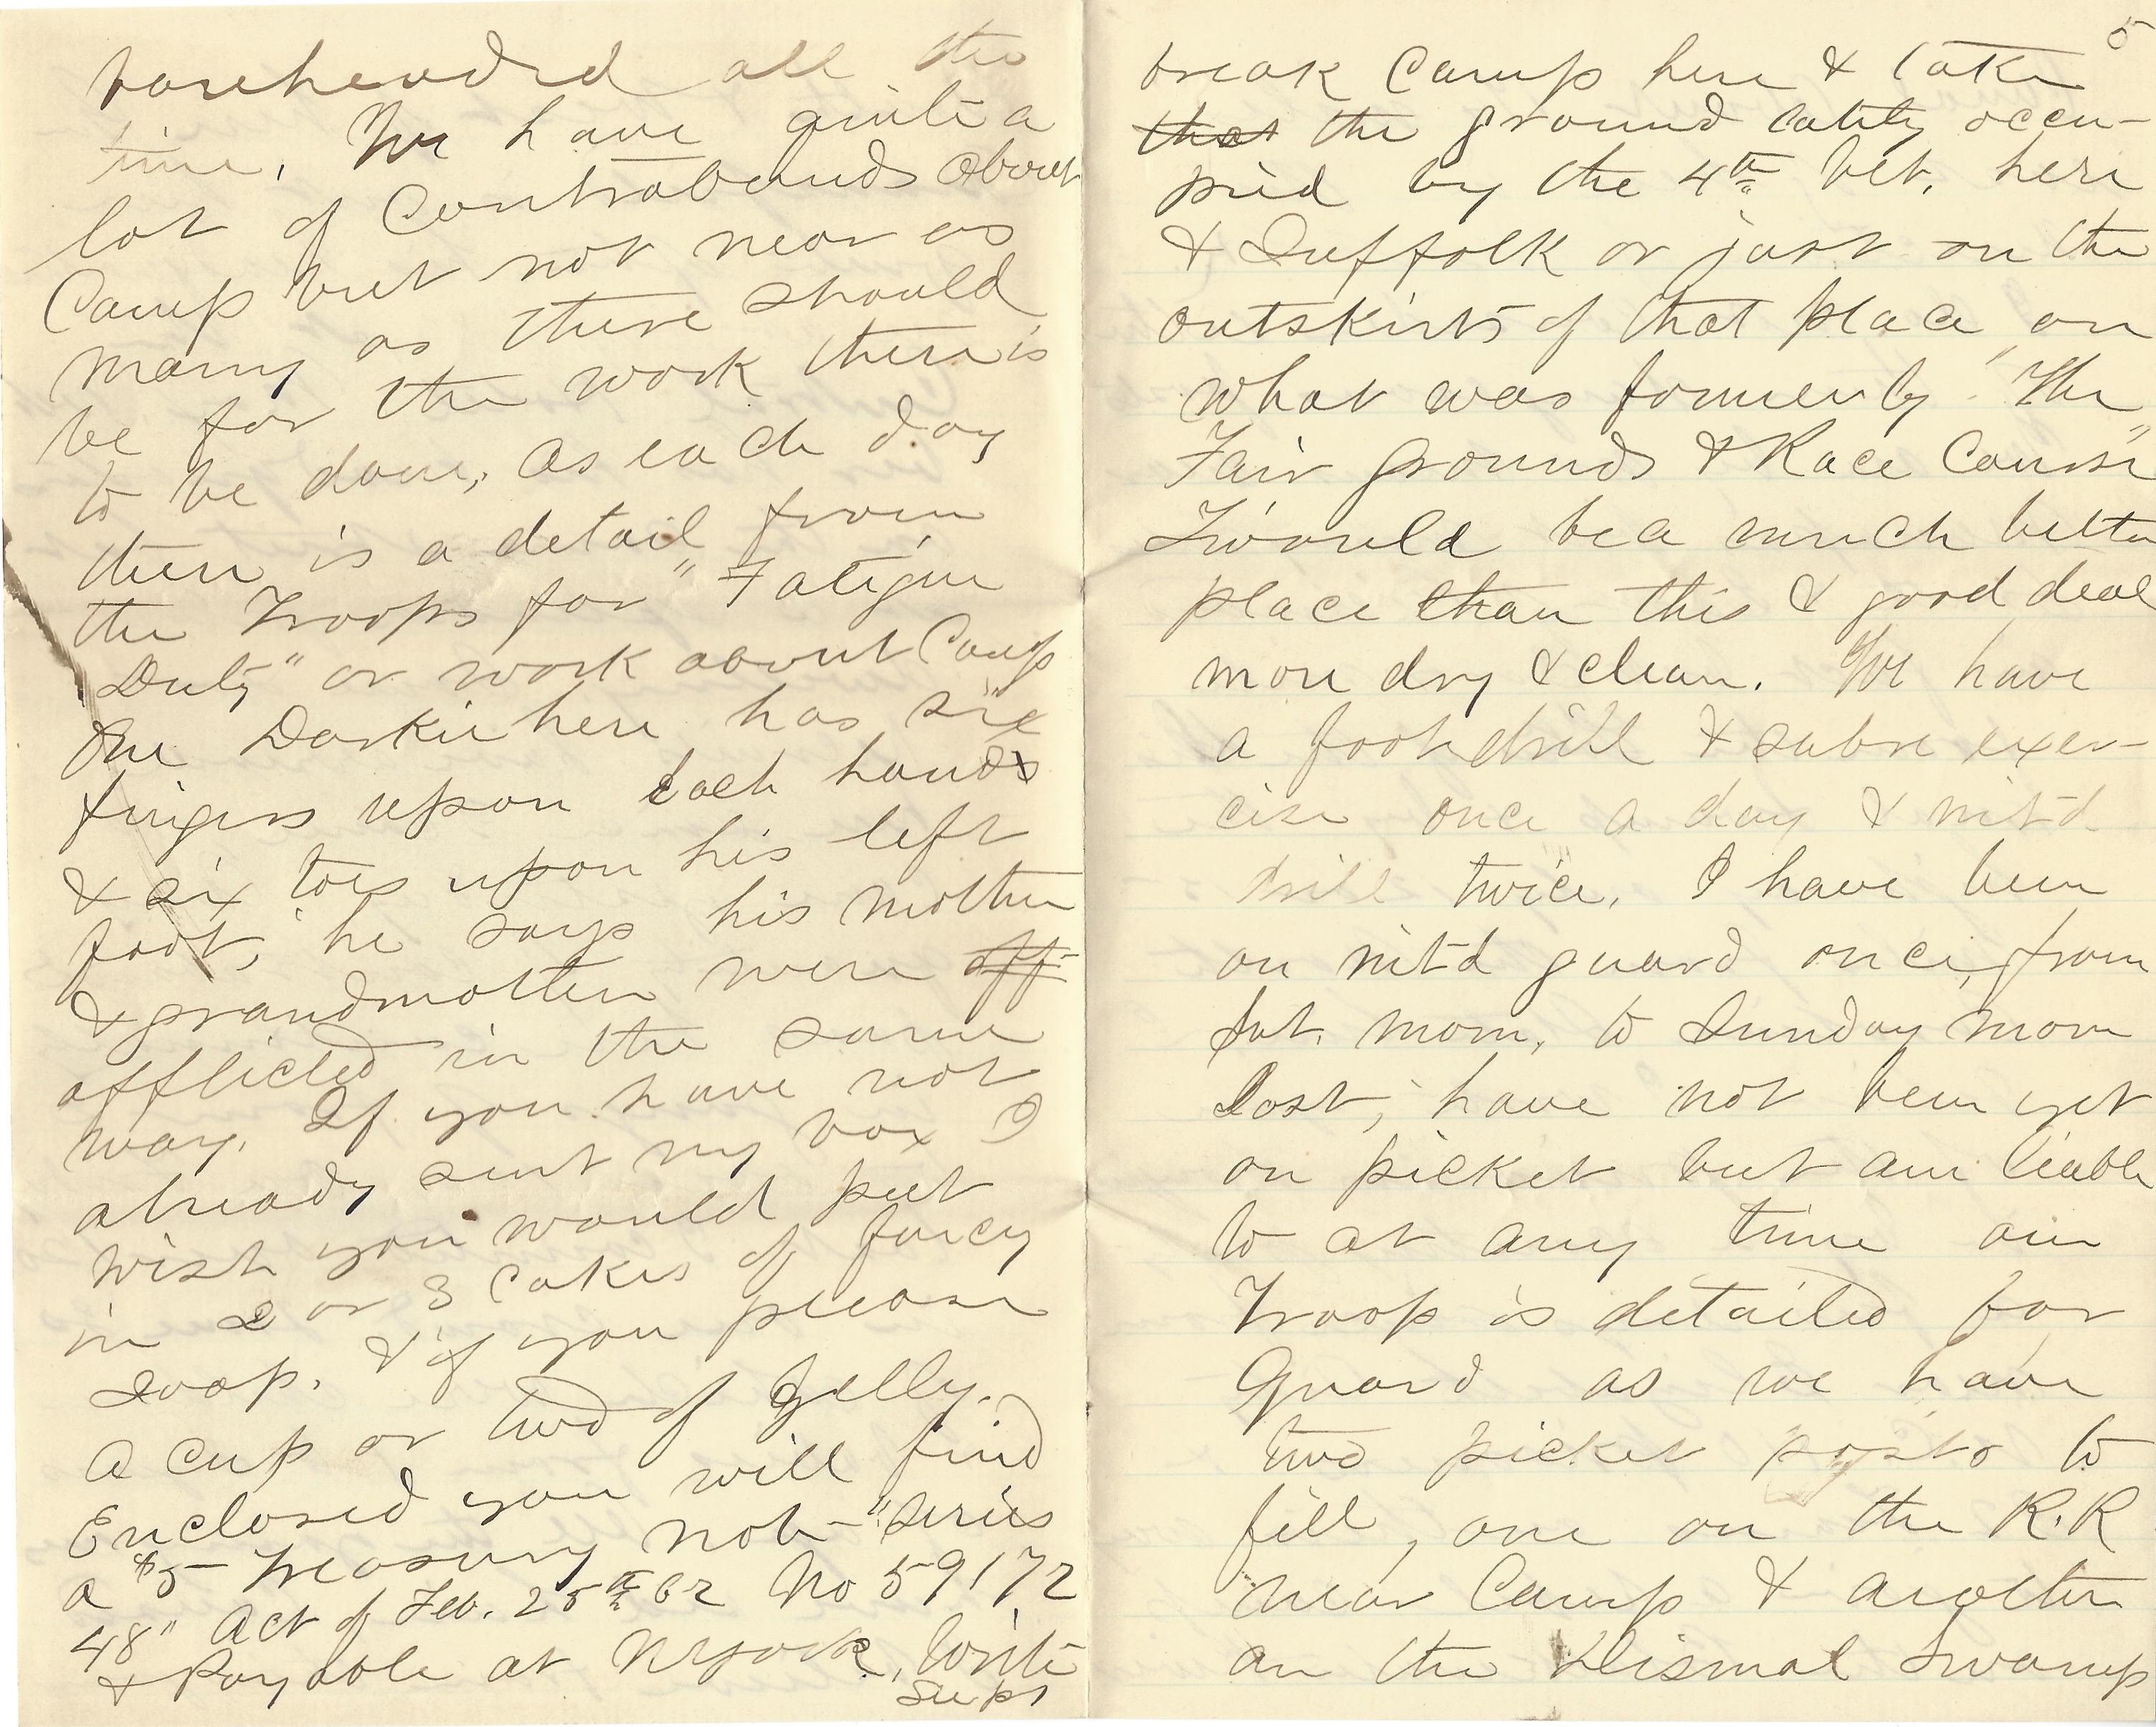 bareheaded all the
time. We have quite a
lot of Contrabands about
Camp but not near as
many as there should
be for the work there is
to be done, as each day
there is a detail from
the Troops for "Fatigue
Duty" or work about Camp
One Darkie here has six
fingers upon each hand
& six toes upon his left
foot, he says his mother
& grandmother were aff-
afflicted in the same
way. If you have not
already sent my box I
wish you would put
in 2 or 3 cakes of fancy
soap. & if you please
a cup or two of Jelly.
Enclosed you will find
a $5 Treasury note - "Series
48" Act of Feb. 25th 62 No 59172
& Payable at N York. Write
See p 1
5
break Camp here & take
that the ground lately occu-
pied by the 4th bet. here
& Suffolk or just on the
outskirts of that place on
what was formerly "The
Fair Grounds & Race Course"
T'would be a much better
place than this & good deal
more dry & clean. We have
a foot drill & sabre exer-
cise once a day & mt'd
drill twice. I have been
on mt'd guard once, from
Sat. morn. to Sunday morn
last, have not been yet
on picket but am liable
to at any time our
Troop is detailed for
Guard as we have
two picket posts to
fill, one on the R.R
near Camp & another
on the Dismal Swamp